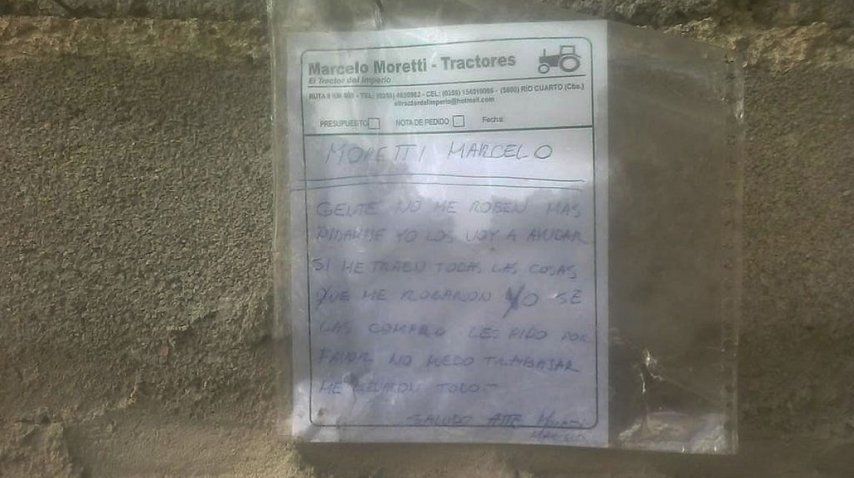 Marcelo Moretti - Tractores
El Tractor del Imperio
RUTA 8 KM - TEL: (0358) 4630962 - CEL: (0358) 154019066 - (5800) RÍO CUARTO (Cba.)
eltractordelimperio@hotmail.com
PRESUPUESTO NOTA DE PEDIDO Fecha:
MORETTI MARCELO
GENTE NO ME ROBEN MAS
PIDANME YO LOS VOY A AYUDAR
SI ME TRAEN TODAS LAS COSAS
QUE ME ROBARON YO SE
LAS COMPRO LES PIDO POR
FAVOR NO PUEDO TRABAJAR
ME TODO
SALUDO ATTE MORETTI
MARCELO